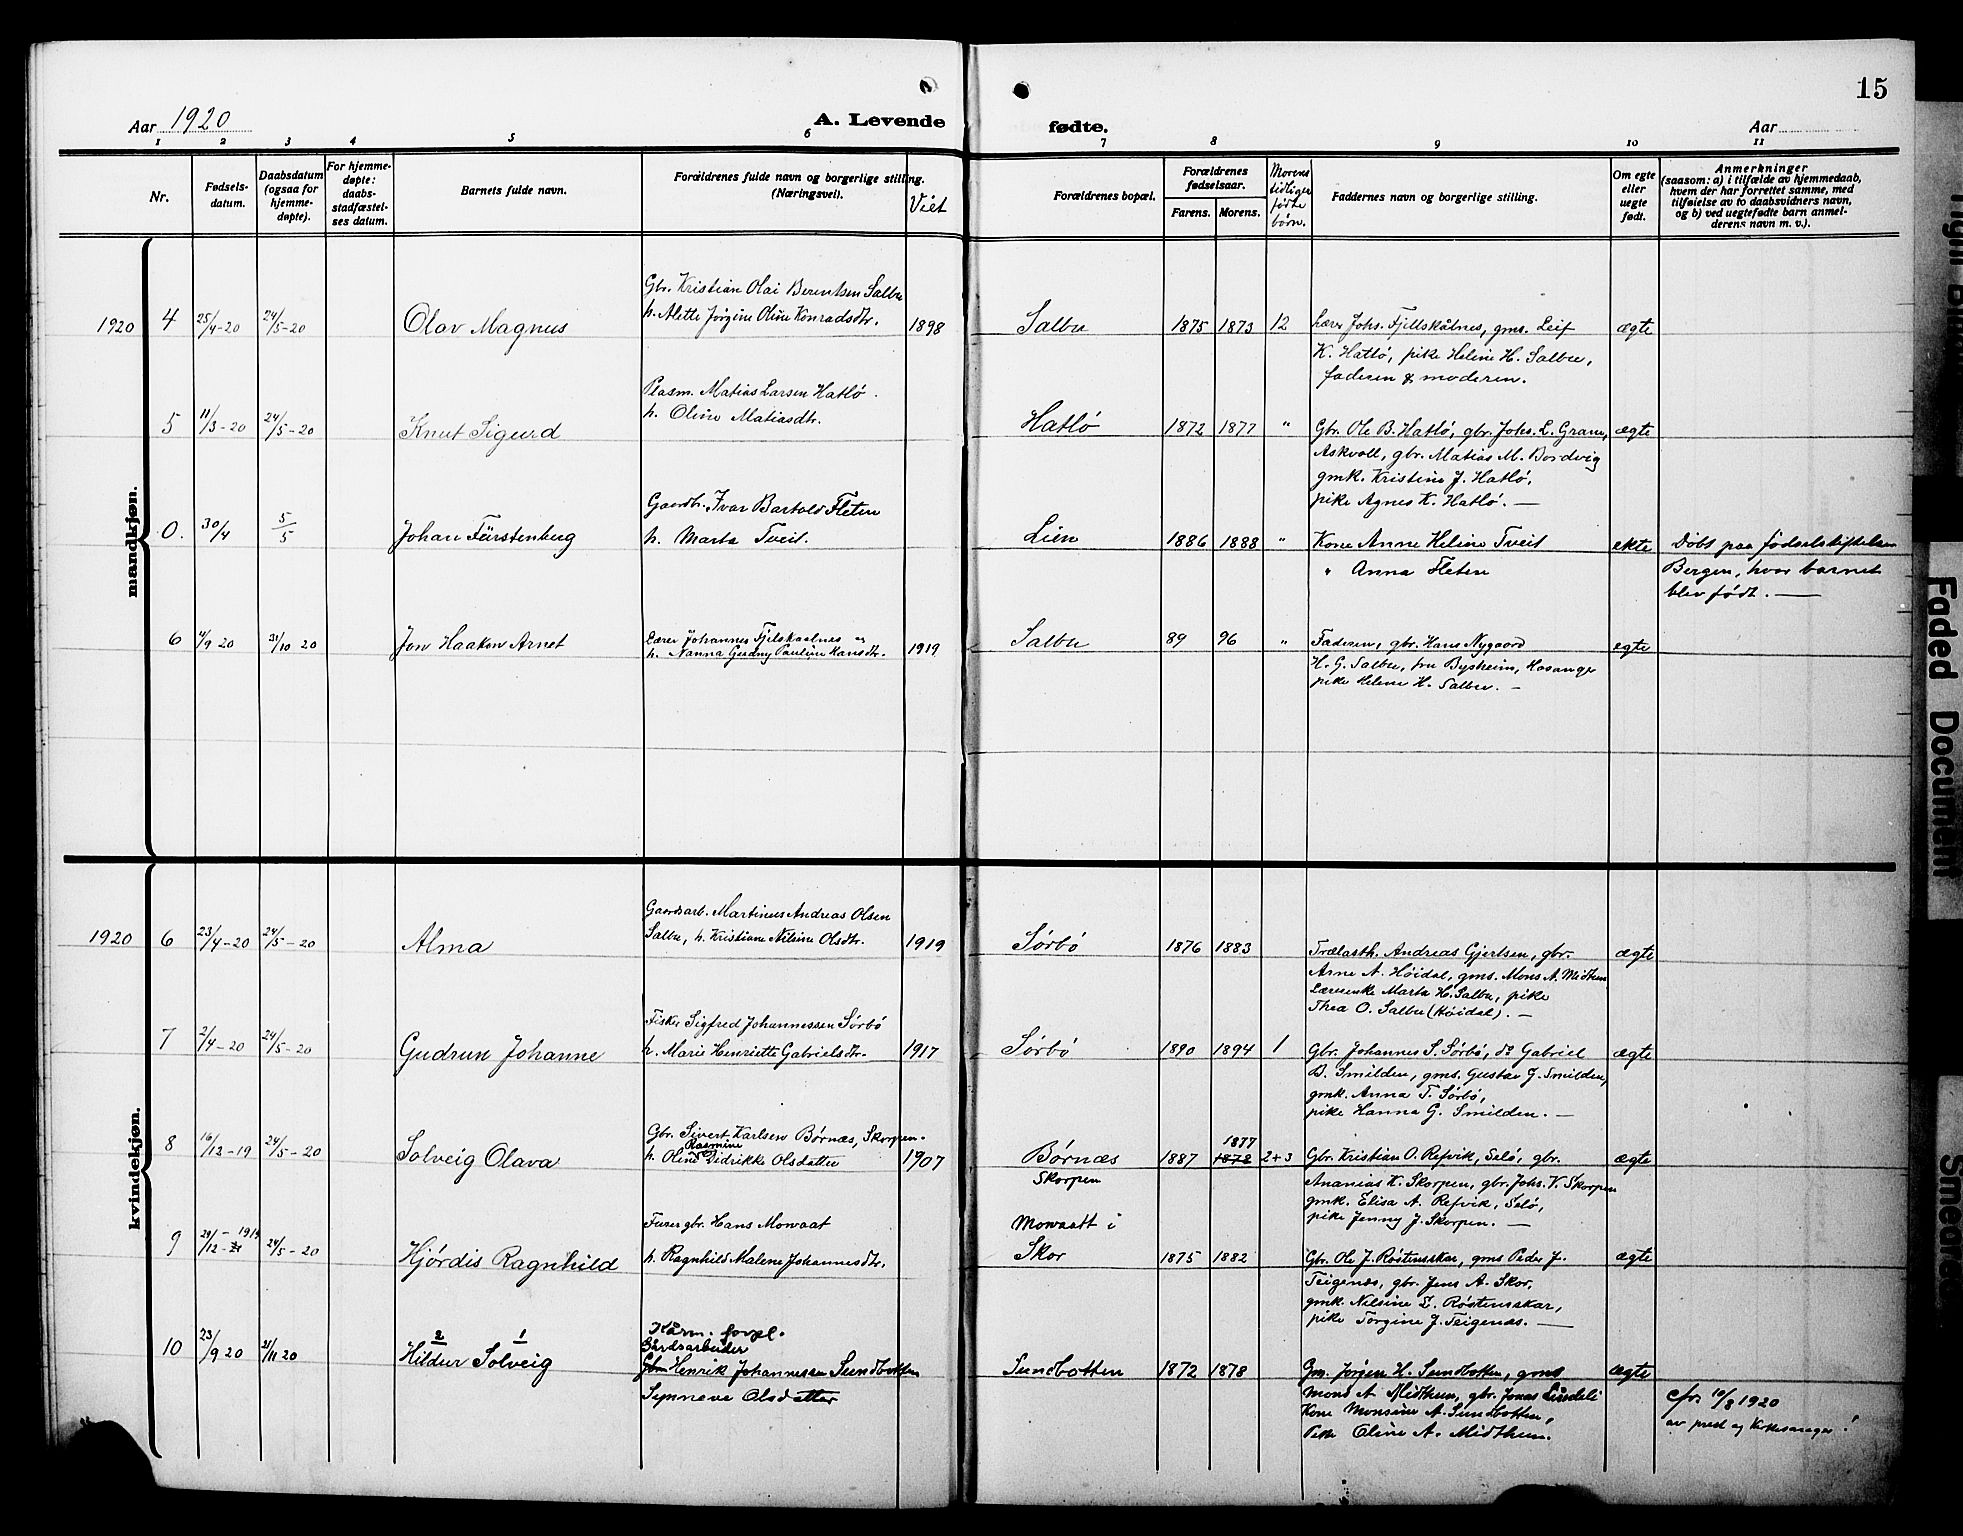 15
Aar 1920
A. Levende
fødte.
Aar
1 2 3 4 5 6
7 8 9 10 11
Nr.
Fødsels-
datum.
Daabsdatum
(ogsaa for
hjemme-
døpte).
For hjemme-
døpte:
daabs-
stadfæstel-
ses datum.
Barnets fulde navn.
Forældrenes fulde navn og borgerlige stilling.
(Næringsvei).
Viet
Forældrenes bopæl.
Forældrenes
fødselsaar.
Farens. Morens.
Morens
tidligere
fødte
børn.
Faddernes navn og borgerlige stilling.
Om egte
eller
uegte
født.
Anmerkninger
(saasom: a) i tilfælde av hjemmedaab,
hvem der har forrettet samme, med
tilføielse av to daabsvidners navn,
og b) ved uegtefødte barn anmel-
derens navn m. v.).
mandkjøn.
Gbr. Kristian Olai Berentsen Salbu
1920 4 25/4-20 24/5-20 Olav Magnus h. Alette Jørgine Oline Konradsdtr. 1898 Salbu 1875 1873 12 Lærer Johs. Fjellskålnes, gms. Leif ægte
K. Hatlö, pike Heline H. Salbu,
faderen & moderen.
Plasm. Matias Larsen Hatlö.
h. Oline Matiasdtr.
5 11/3-20 24/5-20 Knut Sigurd Hatlö 1872 1877 " Gbr. Ole B. Hatlö, gbr. Johs. L. Gram, ægte
Askvoll, gbr. Matias M. Bordvig
gmk. Kristine J. Hatlö,
pike Agnes K. Hatlö. —
Gaardbr. Ivar Bartold Fleten
0. 30/4 5/5 Johan Fürstenberg h. Marta Tveit. Lien 1886 1888 " Kone Anne Heline Tveit ekte Döbt paa födselstiftelsen
" Anna Fleten Bergen, hvor barnet
blev födt. —
6 4/9 20 31/10 20 Jon Haakon Arnet Lærer Johannes Fjelskaalnes og
h. Nanna Gurdny Pauline Hansdtr. 1919 Salbu 89 96 " Faderen, gbr. Hans Nygaard egte
H. G. Salbu, fru Bysheim, Hosanger
pike Helene H. Salbu. —
kvindekjøn.
Gaardsarb. Martinus Andreas Olsen
1920 6 23/4-20 24/5-20 Alma Salbu, h. Kristiane Nilsine Olsdtr. 1919 Sörbö 1876 1883 Trælasth. Andreas Gjertsen, gbr. ægte
Arne A. Höidal, gms. Mons A. Midthun
Lærerinke Marta H. Salbu, pike
Thea O. Salbu (Höidal). —
Fisker Sigfred Johannessen Sörbö
7 2/4-20 24/5-20 Gudrun Johanne h. Marie Henriette Gabrielsdtr. 1917 Sörbö 1890 1894 1 Gbr. Johannes S. Sörbö, do Gabriel ægte
B. Smilden, gms. Gustav J. Smilden,
gmk. Anna T. Sörbö,
pike Hanna G. Smilden. —
Gbr. Sivert Karlsen Börnæs, Skorpen.
Rasmine
8 16/12-19 24/5-20 Solveig Olava h. Oline Didrikke Olsdatter 1907 Börnæs 1887 1878 1877 2+3 Gbr. Kristian O. Refvik, Selö, gbr. ægte
Skorpen Ananias K. Skorpen, gbr. Johs. V. Skorpen
gmk. Elisa A. Refvik, Selö,
pike Jenny J. Skorpen. —
Furer gbr. Hans Mowaat Mowaatt i
9 29/12-1919 24/5-20 Hjördis Ragnhild h. Ragnhild Malene Johannesdtr. Skor 1875 1882 Gbr. Ole J. Röstenskar, gms Peder J. ægte
Teigenæs, gbr. Jens A. Skor,
gmk. Nilsine L. Röstenskar,
pike Torgine J. Teigenæs. —
Kårm. forpl.
Gårdsarbeider
10 23/9 20 21/11 20 2 1 Hildur Solveig Gbm Henrik Johannessen Sundbotten Sundbotten 1872 1878 Gm. Jörgen H. Sundbotten, gms ægte
Synneve Olsdatter Mons A Midthun, gbr. Jonas Lindeli cfr. 10/8 1920
Kone Monsine A. Sundbotten, av prest og Kirkesanger!
Pike Oline A. Midthun.
Faded Document